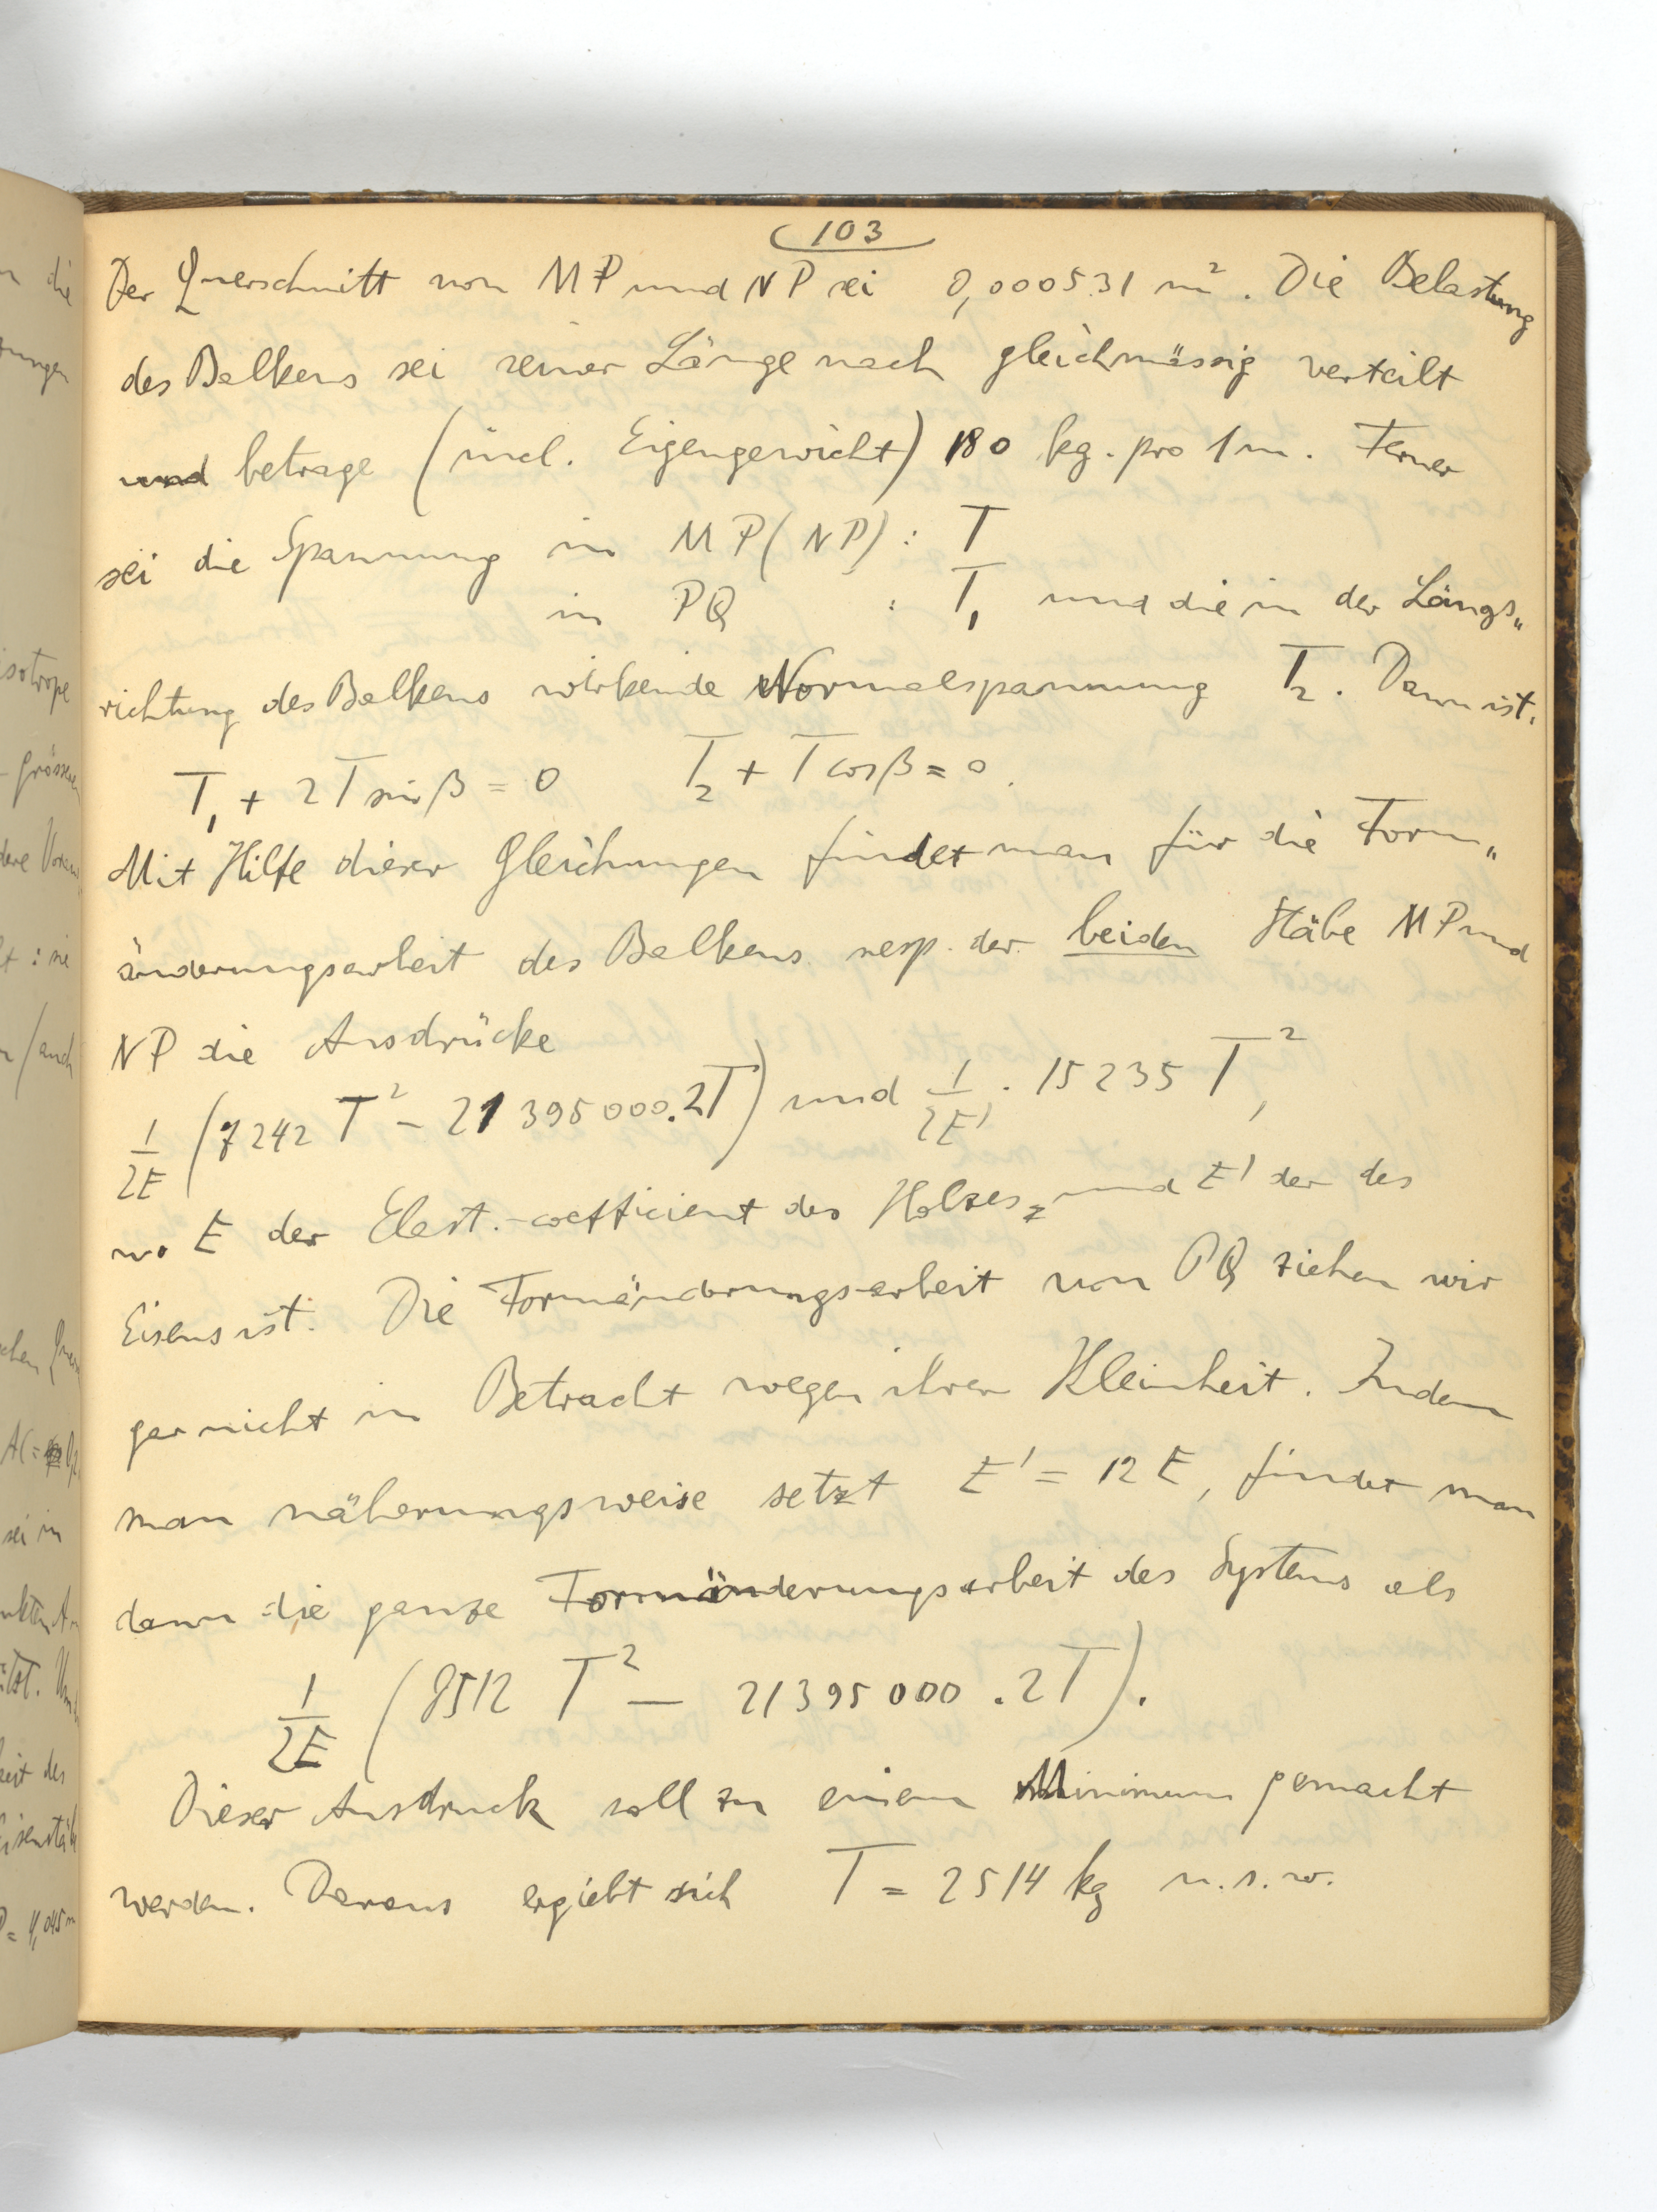 n die
ungen
isotrope
grössen
dere
t : sie
/auch
chen
AC =
sei in
tst.
eit des
isenstäb
P = 4,045 m
103
Der Querschnitt von MP und NP sei 0,000531 m². Die Belastung
des Balkens sei seiner Länge nach gleichmässig verteilt
und betrage (incl. Eigengewicht) 180 kg. pro 1 m. Ferner
sei die Spannung in MP (NP) : T
in PQ : T₁ und die in der Längs„
richtung des Balkens wirkende Normalspannung T₂. Dann ist:
T₁ + 2T sin β = 0 T₂ + T cos β = 0.
Mit Hilfe dieser Gleichungen findet man für die Form„
änderungsarbeit des Balkens resp. der beiden Stäbe MP und
NP die Ausdrücke
1/2E (7242 T² – 21395000.2T) und 1/2E' . 15235 T²,
wo E der Elast.-coefficient des Holzes, und E' der des
Eisens ist. Die Formänderungsarbeit von PQ ziehen wir
gar nicht in Betracht wegen ihrer Kleinheit. Indem
man näherungsweise setzt E' = 12 E, findet man
dann die ganze Formänderungsarbeit des Systems als
1/2E (8512 T² – 21395000 . 2T).
Dieser Ausdruck soll zu einem Minimum gemacht
werden. Daraus ergiebt sich T = 2514 kg u. s. w.